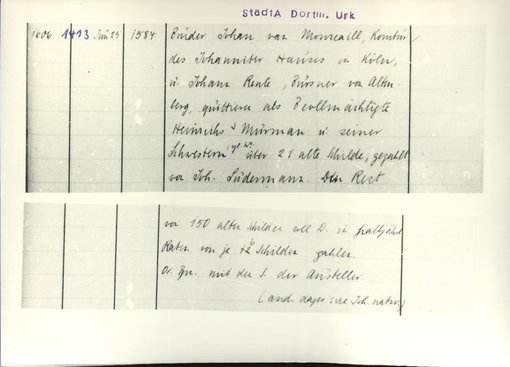 StadtA Dortm. Urk
1606 1413 Juni 25 1584 Bruder Johan van Monreaill, Komtur
des Johanniter Hauses in Köln,
u. Johann Rente, Bürsner von Alten-
berg, quittieren als Bevollmächtigte
Heinrichs Mürman u. seiner
Schwestern über 21 alte Schilde, gezahlt
von Joh. Südermann. Den Rest
von 150 alten Schilden soll D. in halbjähr
Raten von je 12 Schilden zahlen.
Or. Pn. mit den S. der Aussteller.
(and. dages une Joh. nativ.)